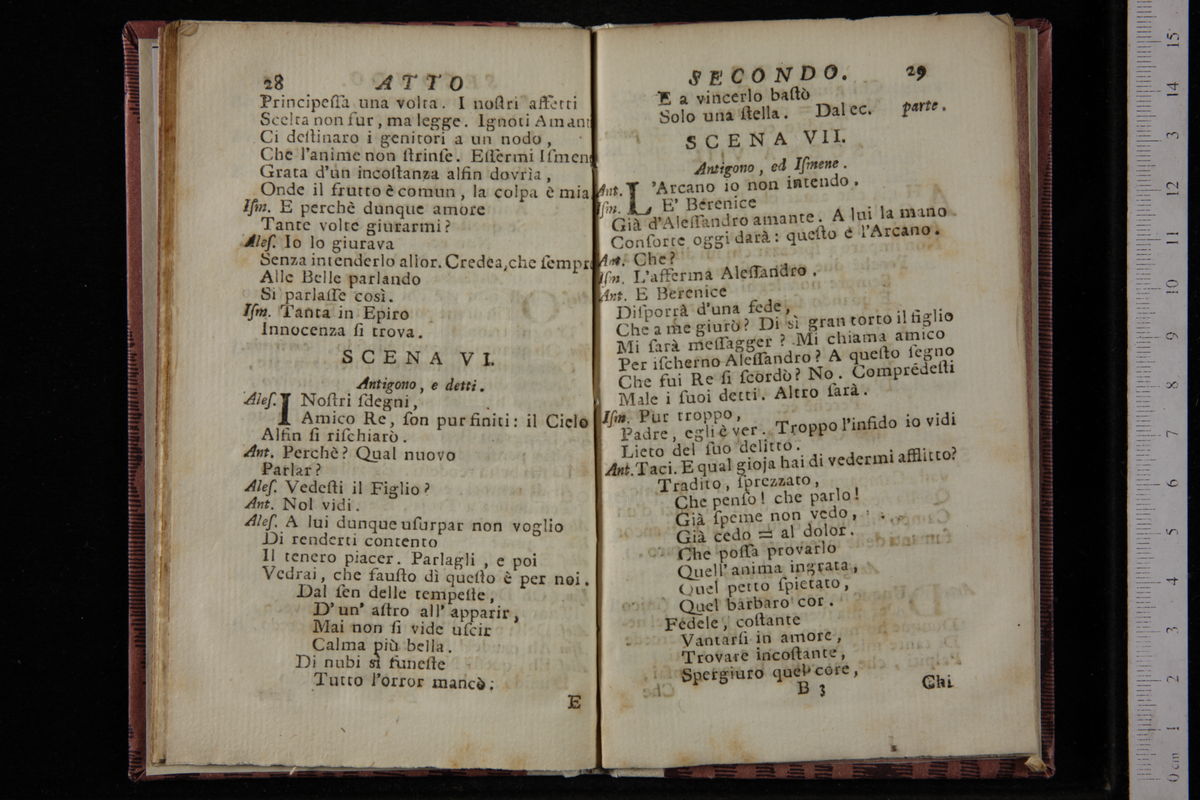 28 ATTO
Principeſſa una volta. I noſtri affetti
Scelta non fur, ma legge. Ignoti Amant
Ci deſtinaro i genitori a un nodo,
Che l'anime non ſtrinſe. Eſſermi Iſmen
Grata d'un incoſtanza alfin dovrìa,
Onde il frutto è comun, la colpa è mia
Iſm. E perchè dunque amore
Tante volte giurarmi?
Aleſ. Io lo giurava
Senza intenderlo allor. Credéa, che ſempr
Alle Belle parlando
Si parlaſſe così.
Iſm. Tanta in Epiro
Innocenza ſi trova.
SCENA VI.
Antigono, e detti.
Aleſ. I Noſtri ſdegni,
Amico Re, ſon pur finiti: il Cielo
Alfin ſi riſchiarò.
Ant. Perchè? Qual nuovo
Parlar?
Aleſ. Vedeſti il Figlio?
Ant. Nol vidi.
Aleſ. A lui dunque uſurpar non voglio
Di renderti contento
Il tenero piacer. Parlagli, e poi
Vedrai, che fauſto dì queſto è per noi.
Dal ſen delle tempeſte,
D'un' aſtro all' apparir,
Mai non ſi vide uſcir
Calma più bella.
Di nubi sì funeſte
Tutto l'orror mancò;
E
SECONDO. 29
E a vincerlo baſtò
Solo una ſtella. Dal ec. parte.
SCENA VII.
Antigono, ed Iſmene.
Ant. L'Arcano io non intendo.
Iſm. E' Berenice
Già d'Aleſſandro amante. A lui la mano
Conſorte oggi darà: queſto è l'Arcano.
Ant. Che?
Iſm. L'afferma Aleſſandro.
Ant. E Berenice
Diſporrà d'una fede,
Che a me giurò? Di sì gran torto il figlio
Mi ſarà meſſagger? Mi chiama amico
Per iſcherno Aleſſandro? A queſto ſegno
Che fui Re ſi ſcordò? No. Comprédeſti
Male i ſuoi detti. Altro ſarà.
Iſm. Pur troppo,
Padre, egli è ver. Troppo l'infido io vidi
Lieto del ſuo delitto.
Ant. Taci. E qual gioja hai di vedermi afflitto?
Tradito, ſprezzato,
Che penſo! che parlo!
Già ſpeme non vedo,
Già cedo = al dolor.
Che poſſa provarlo
Quell' anima ingrata,
Quel petto ſpietato,
Quel barbaro cor.
Fedele, coſtante
Vantarſi in amore,
Trovare incoſtante,
Spergiuro quel core,
B 3 Chi
0 cm 1 2 3 4 5 6 7 8 9 10 11 12 13 14 15